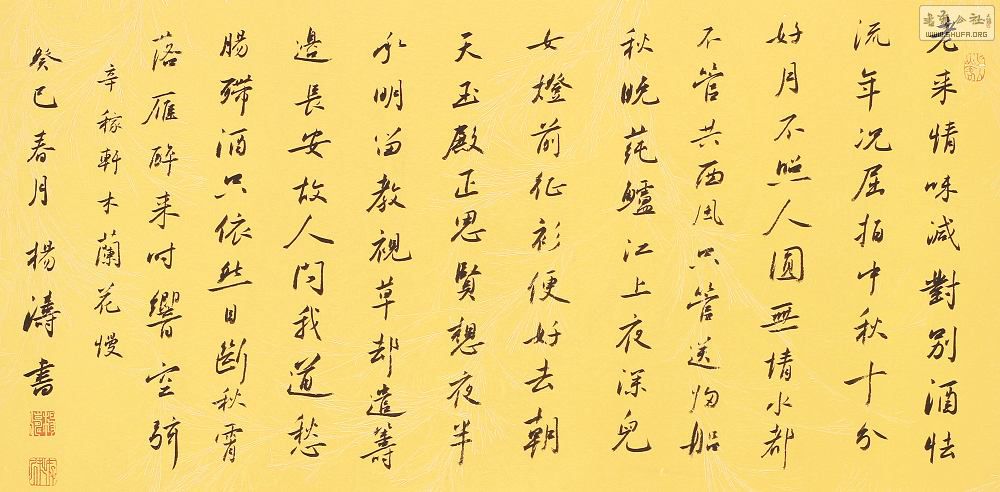 老来情味减對别酒怯
流年况屈指中秋十分
好月不照人圓無情水都
不管共西風只管送归船
秋晚莼鱸江上夜深兒
女燈前征衫便好去朝
天玉殿正思賢想夜半
承明留教視草却遣籌
邊長安故人問我道愁
腸殢酒只依然目斷秋霄
落雁醉来时響空弦
辛稼軒木蘭花慢
癸巳春月楊濤書
书法公社
WWW.SHUFA.ORG